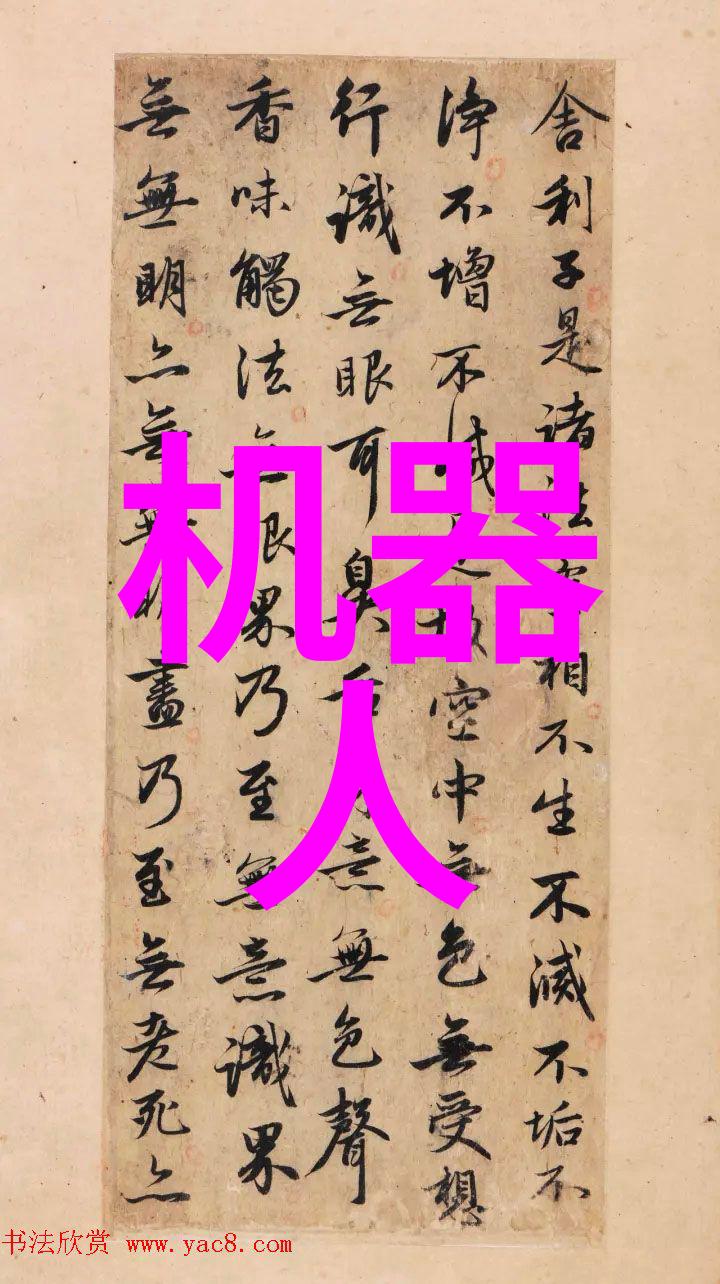 舍利子是諸法空相不生不滅不垢不
淨不增不減是故空中無色無受想
行識無眼耳鼻舌意無色聲
香味觸法無眼界乃至無意識界
無無明亦無無明盡乃至無老死亦
机器
人
书法欣赏 www.yac8.com